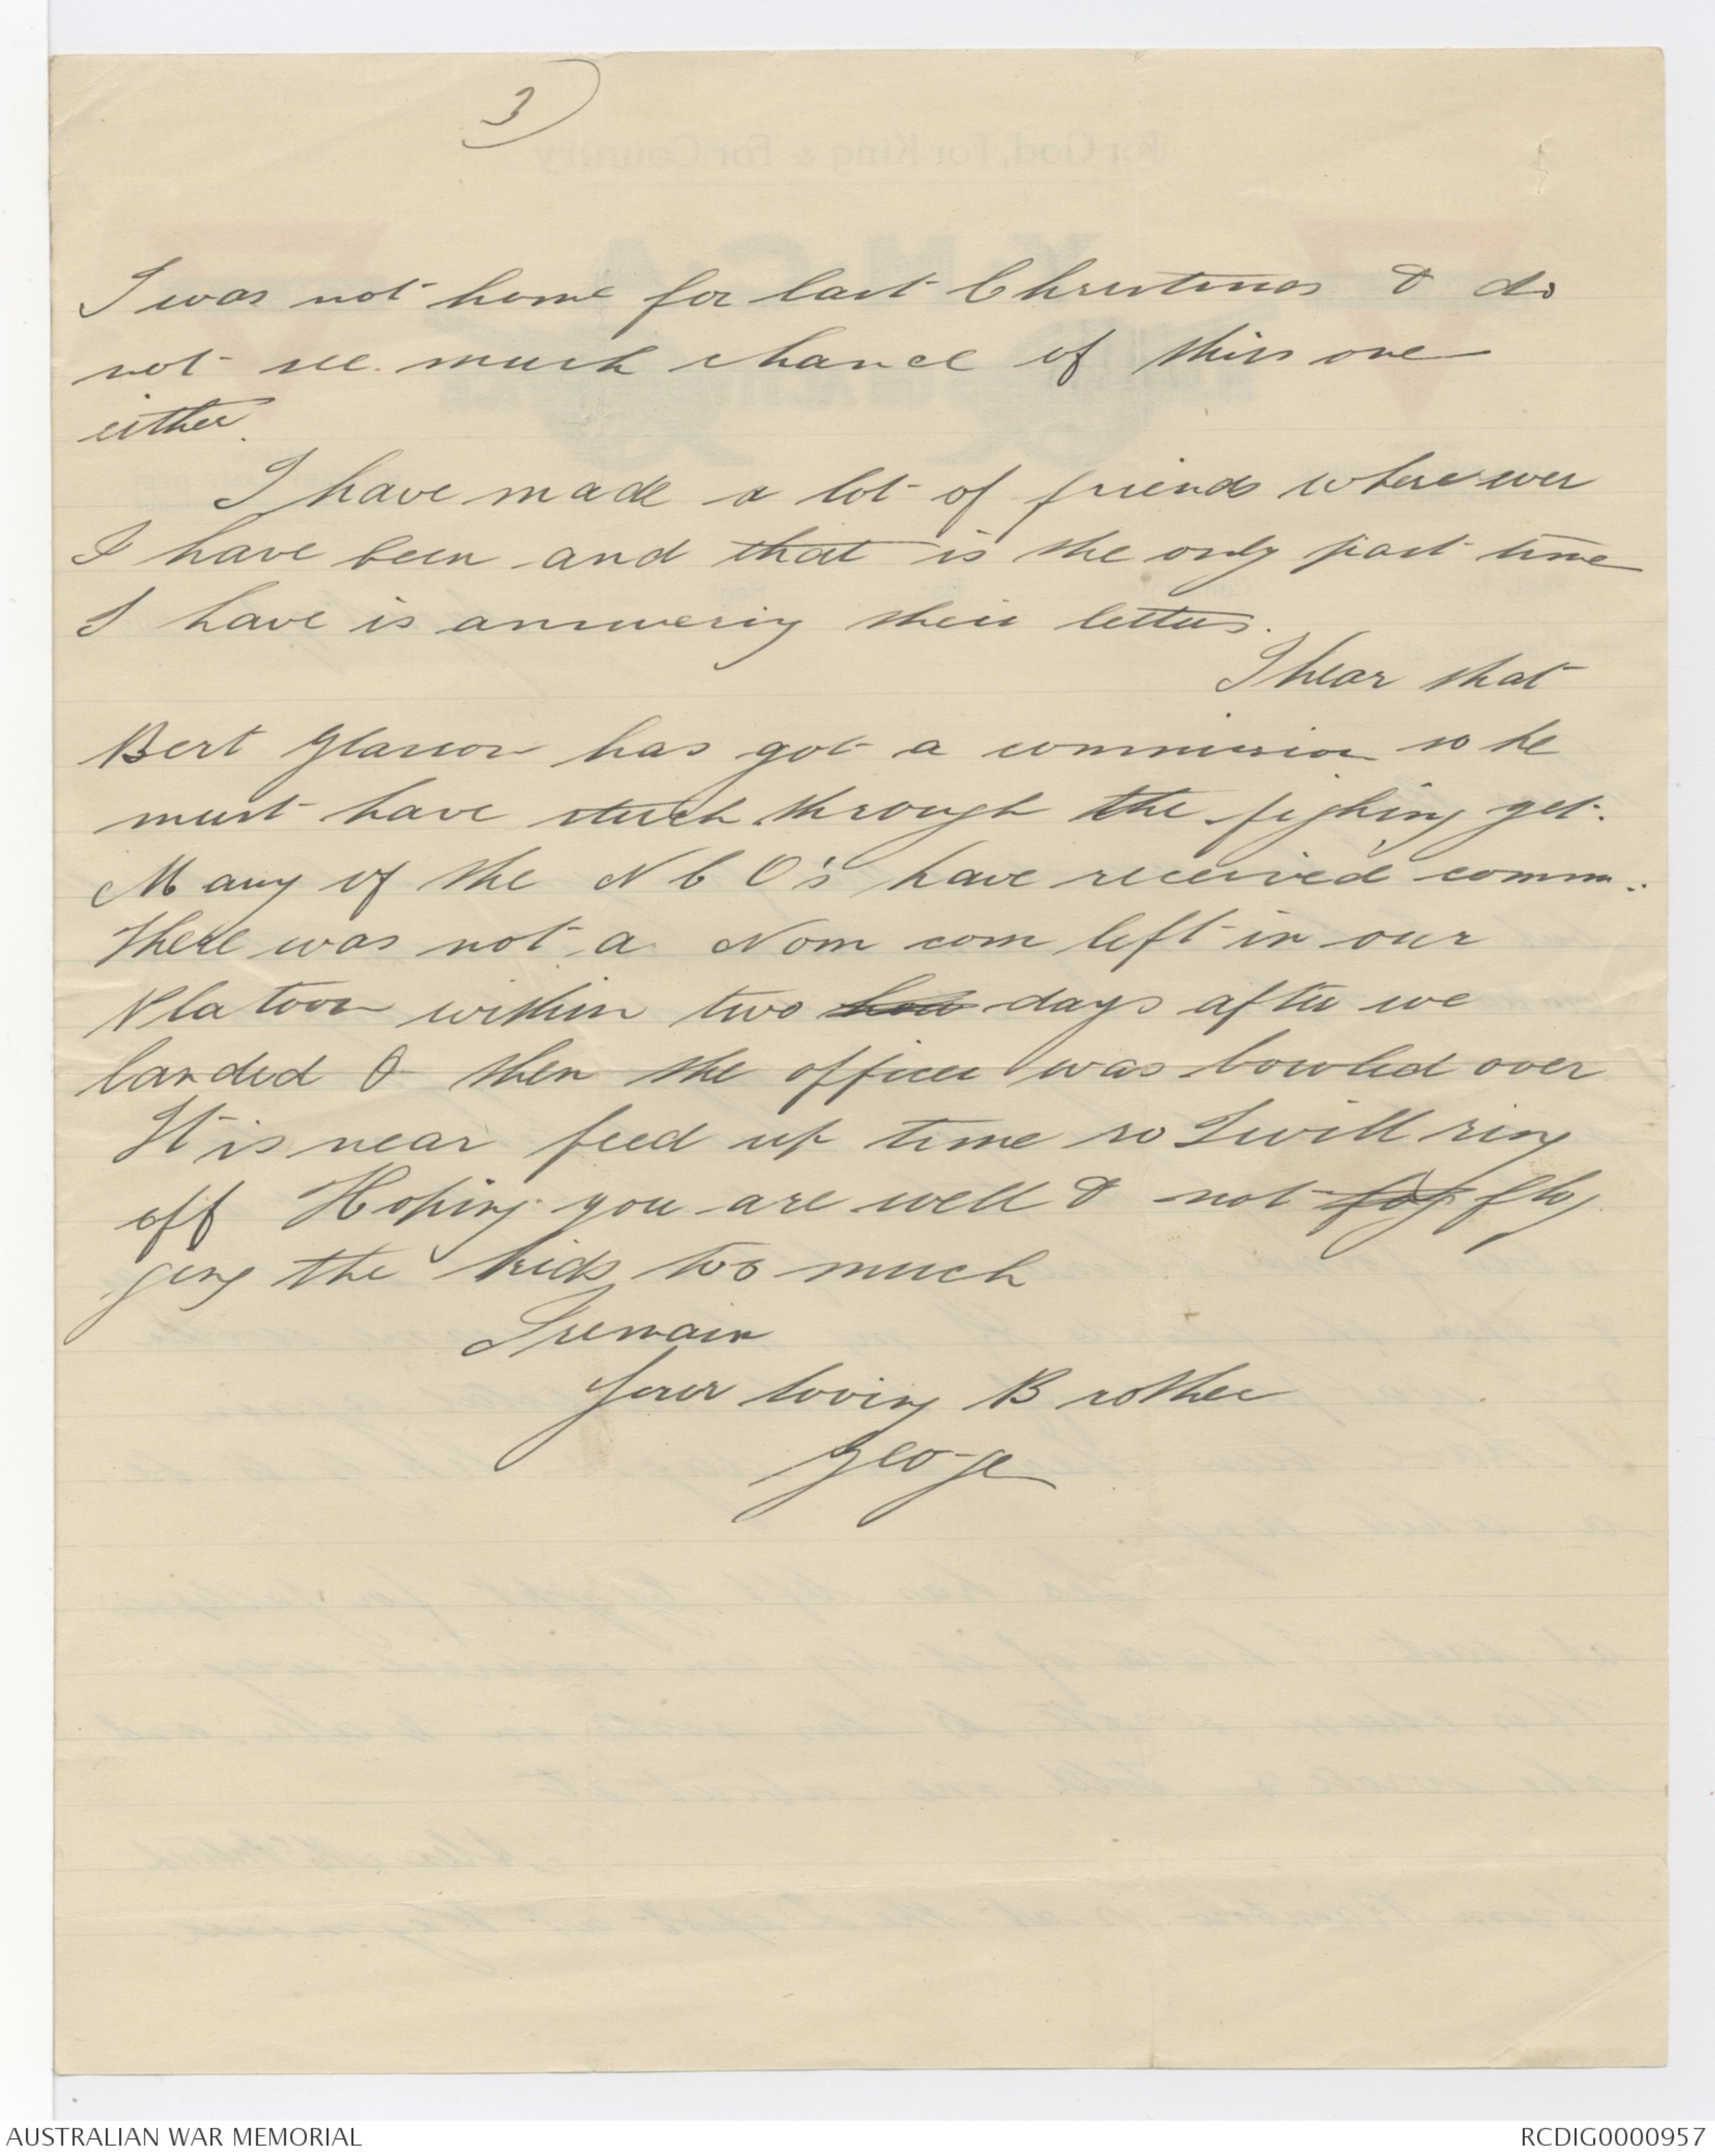 3)
I was not home for last Christmas & do
not see much chance of this one
either.
I have made a lot of friends where ever
I have been and that is the only past time
I have is answering their letters.
I hear that
Bert Glasson has got a commission so he
must have stuck through the fighing yet.
Many of the N C O's have received comm..
There was not a Nom com left in our
Platoon within two hou days after we
landed & then the officer was bowled over
It is near feed up time so I will ring
off Hoping you are well & not fog flog
ging the kids too much
I remain
Your loving Brother
George
AUSTRALIAN WAR MEMORIAL
RCDIG0000957